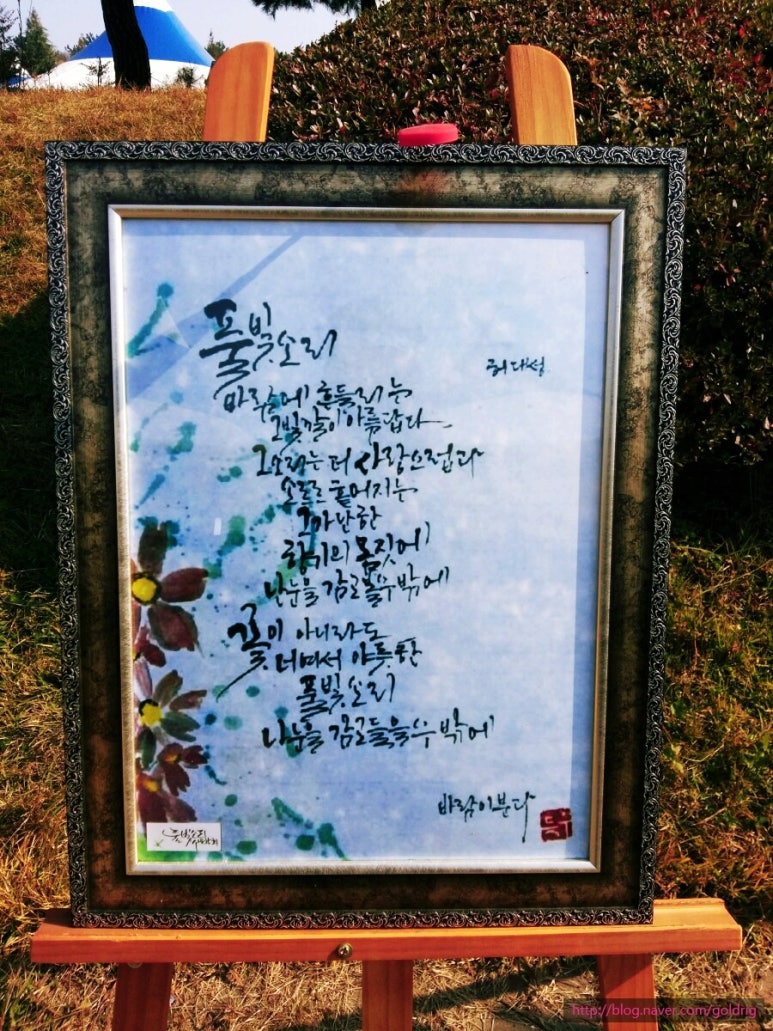 풀빛소리
허대성
바람에 흔들리는
그빛깔이 아름답다
그소리는 더 사랑스럽다
소르르 흩어지는
그가난한
향기의 몸짓에
난눈을 감고볼수밖에
꽃이 아니라도
너여서 야릇한
풀빛소리
난눈을 감고들을수밖에
바람이분다
풀빛소리
http://blog.naver.com/goldrig